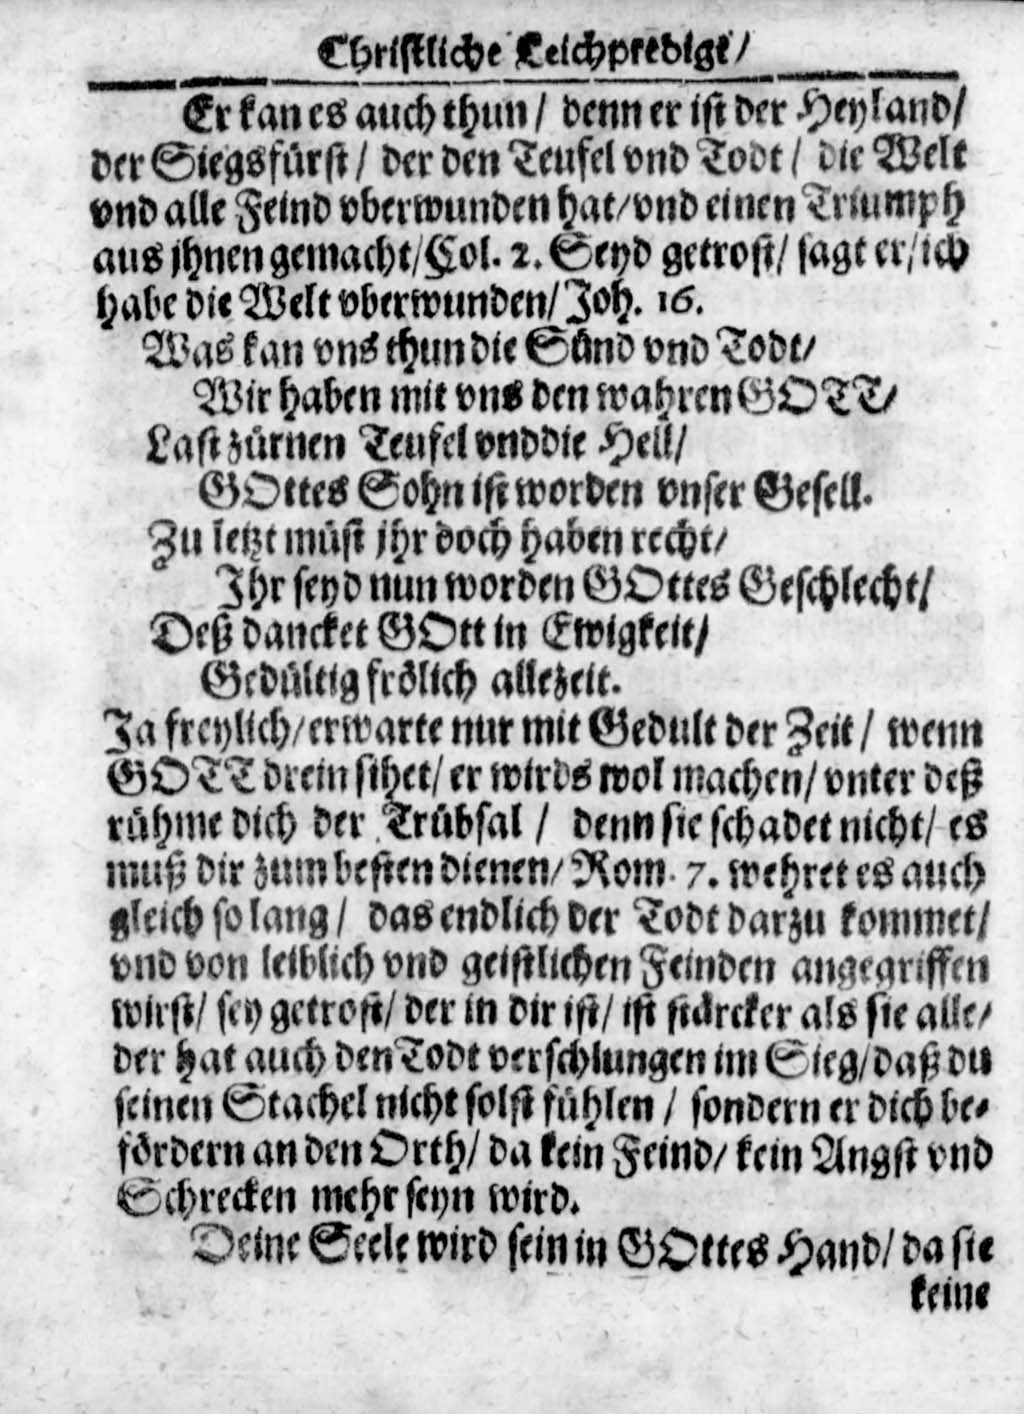 Christliche Leichpredigt/
Er kan es auch thun / denn er ist der Heyland/
der Siegsfürst / der den Teufel vnd Todt / die Welt
vnd alle Feind vberwunden hat/vnd einen Triumph
aus jhnen gemacht/Col. 2. Seyd getrost/ sagt er/ich
habe die Welt vberwunden/Joh. 16.
Was kan vns thun die Sünd vnd Todt/
Wir haben mit vns den wahren GOTT/
Last zürnen Teufel vnd die Hell/
GOttes Sohn ist worden vnser Gesell.
Zu letzt müst jhr doch haben recht/
Jhr seyd nun worden GOttes Geschlecht/
Deß dancket GOtt in Ewigkeit/
Gedültig frölich allezeit.
Ja freylich/erwarte nur mit Gedult der Zeit / wenn
GOTT drein sihet/ er wirds wol machen/ vnter deß
rühme dich der Trübsal / denn sie schadet nicht/ es
muß dir zum besten dienen/ Rom. 7. wehret es auch
gleich so lang / das endlich der Todt darzu kommet/
vnd von leiblich vnd geistlichen Feinden angegriffen
wirst/ sey getrost/ der in dir ist/ ist stärcker als sie alle/
der hat auch den Todt verschlungen im Sieg/daß du
seinen Stachel nicht solst fühlen / sondern er dich be-
fördern an den Orth/ da kein Feind/ kein Angst vnd
Schrecken mehr seyn wird.
Deine Seele wird sein in GOttes Hand/ da sie
keine